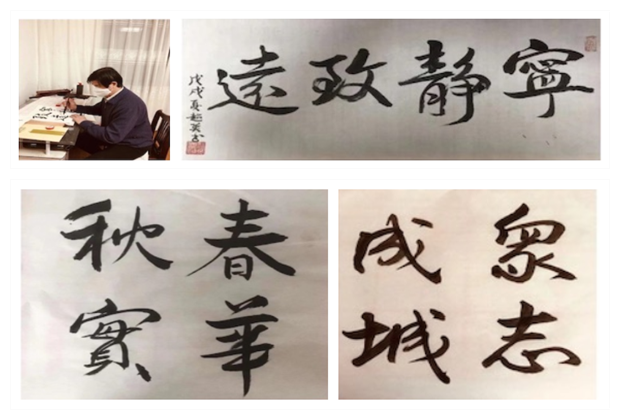 寧静致遠
戊戌夏
春華
秋實
眾志
成城